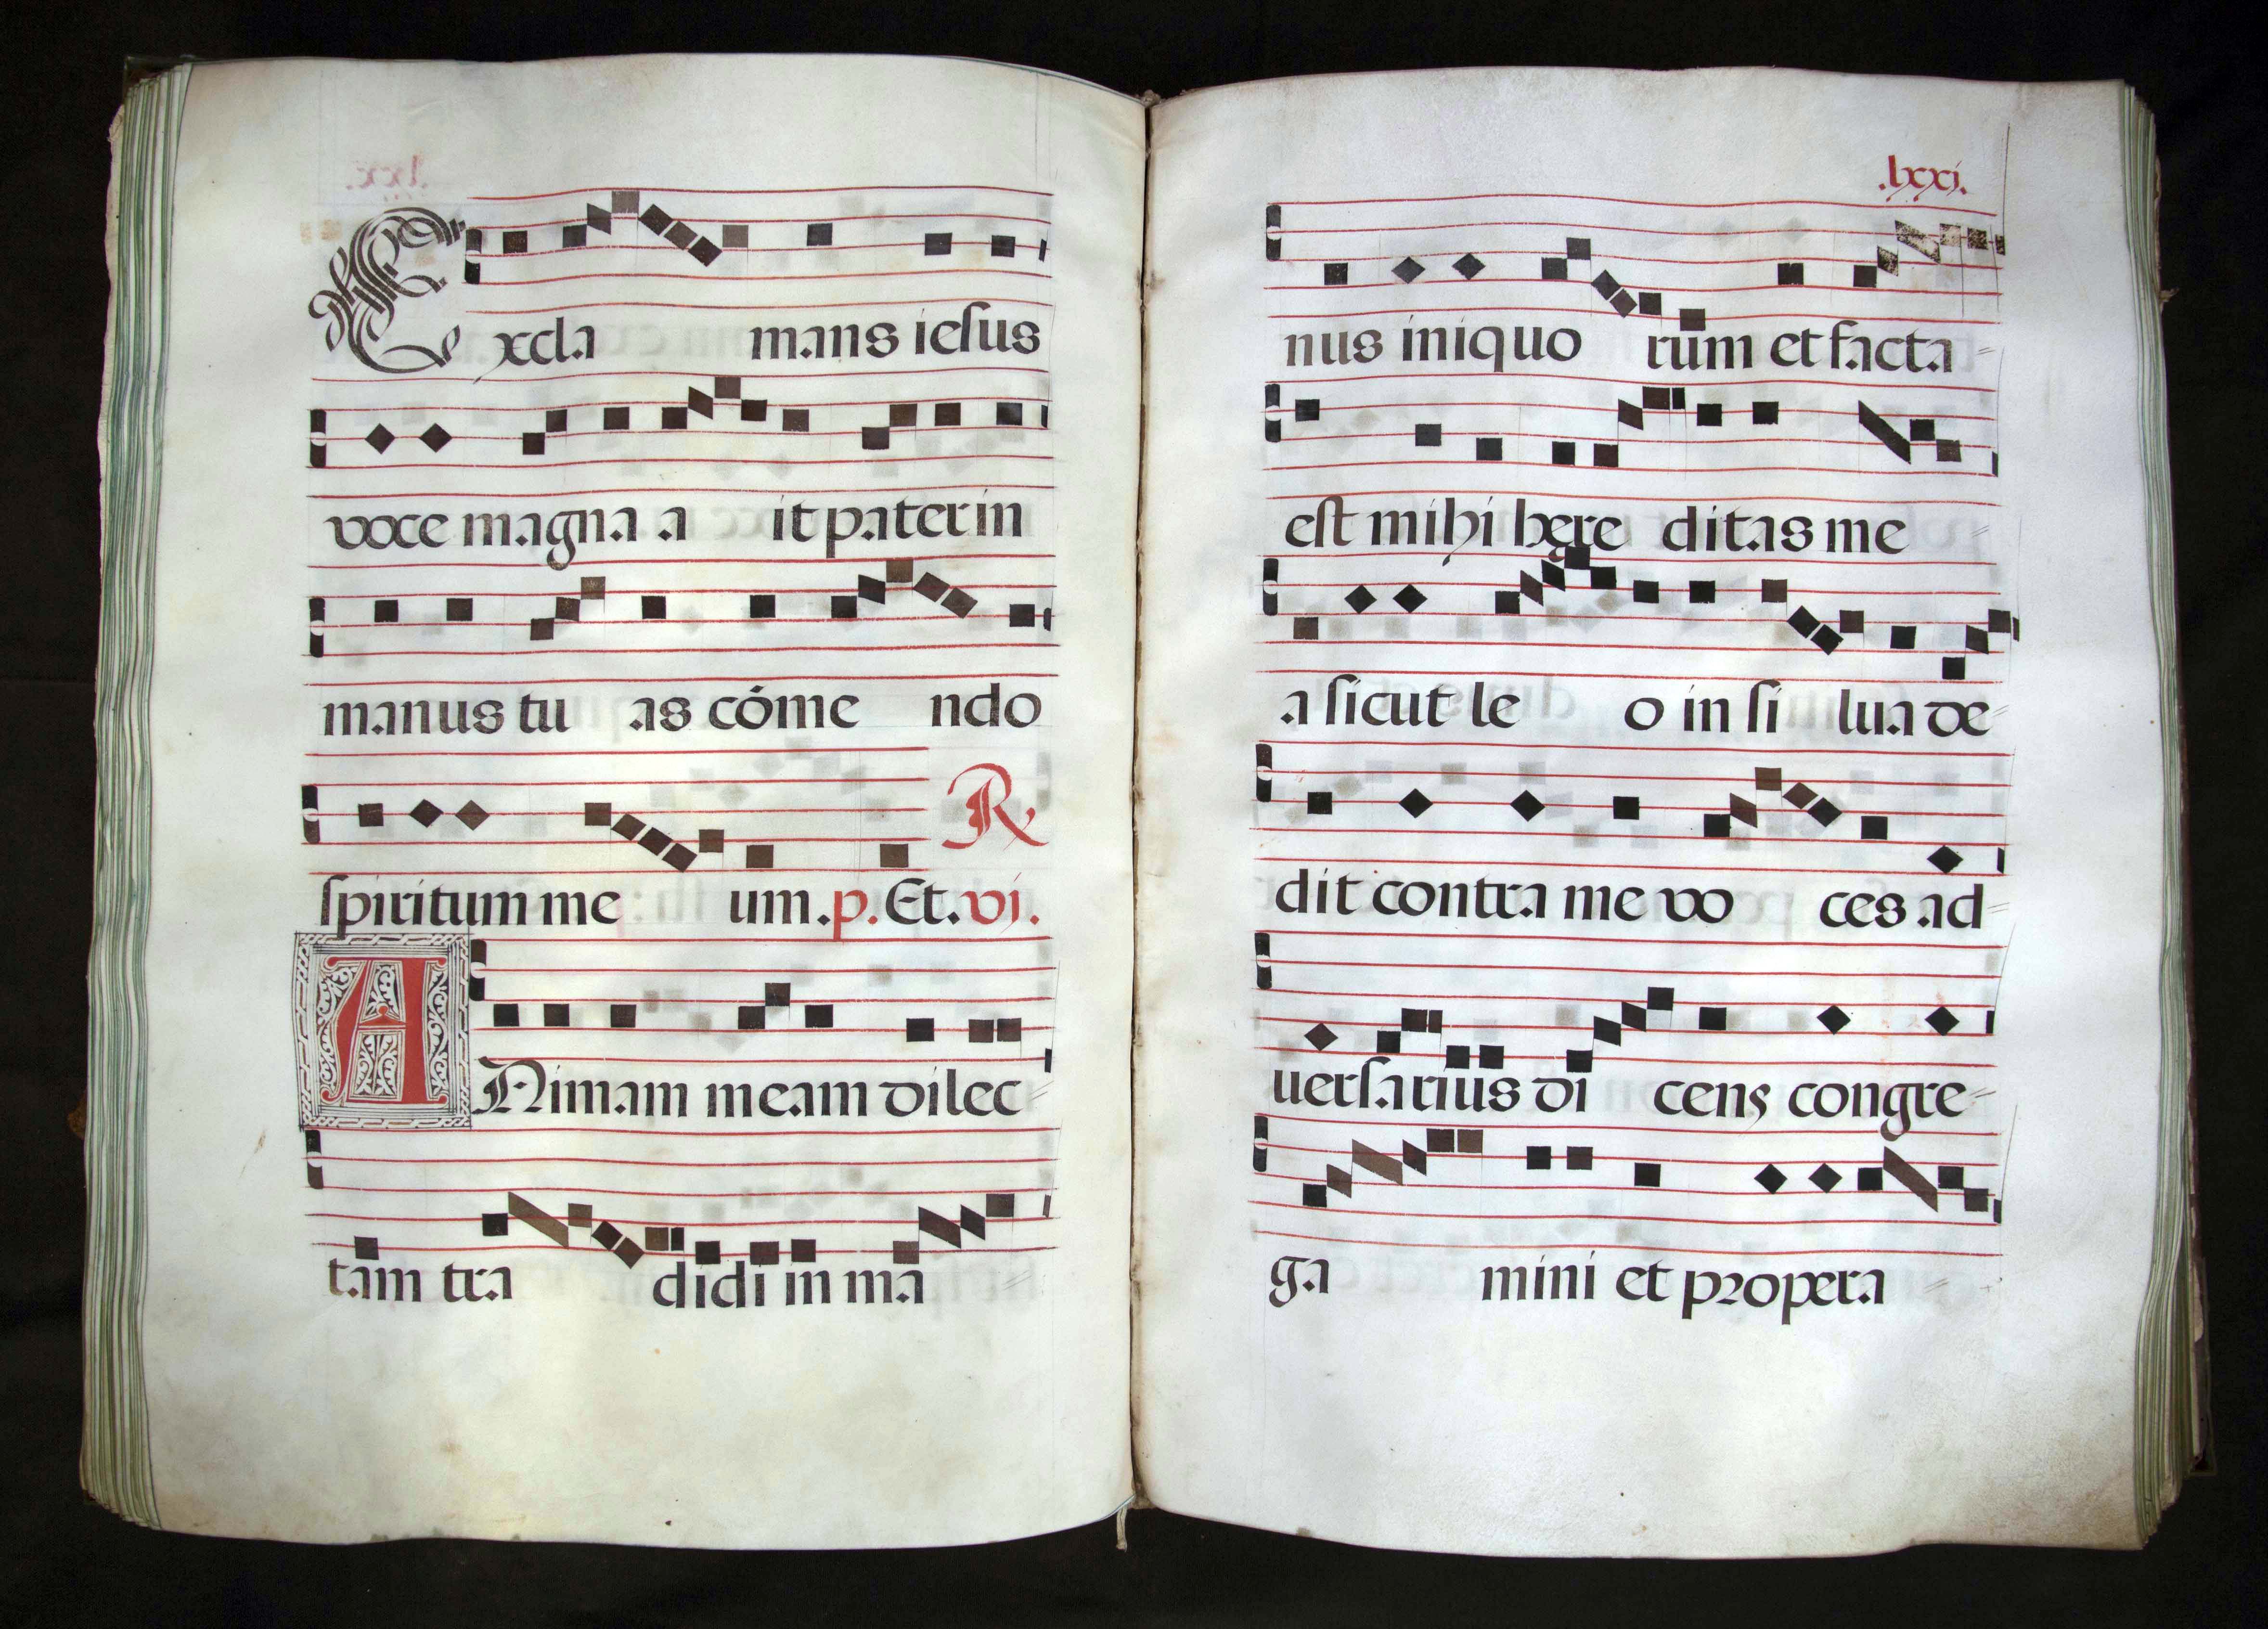 Excla mans iesus
voce magna a it pater in
manus tu as cóme ndo
spiritum me um .p. Et. vi.
R
ANimam meam dilec
tam tra didi in ma
.lxxi.
nus iniquo rum et facta
est mihi here ditas me
a sicut le o in si lua de
dit contra me vo ces ad
uersarius di cens congre
ga mini et propera